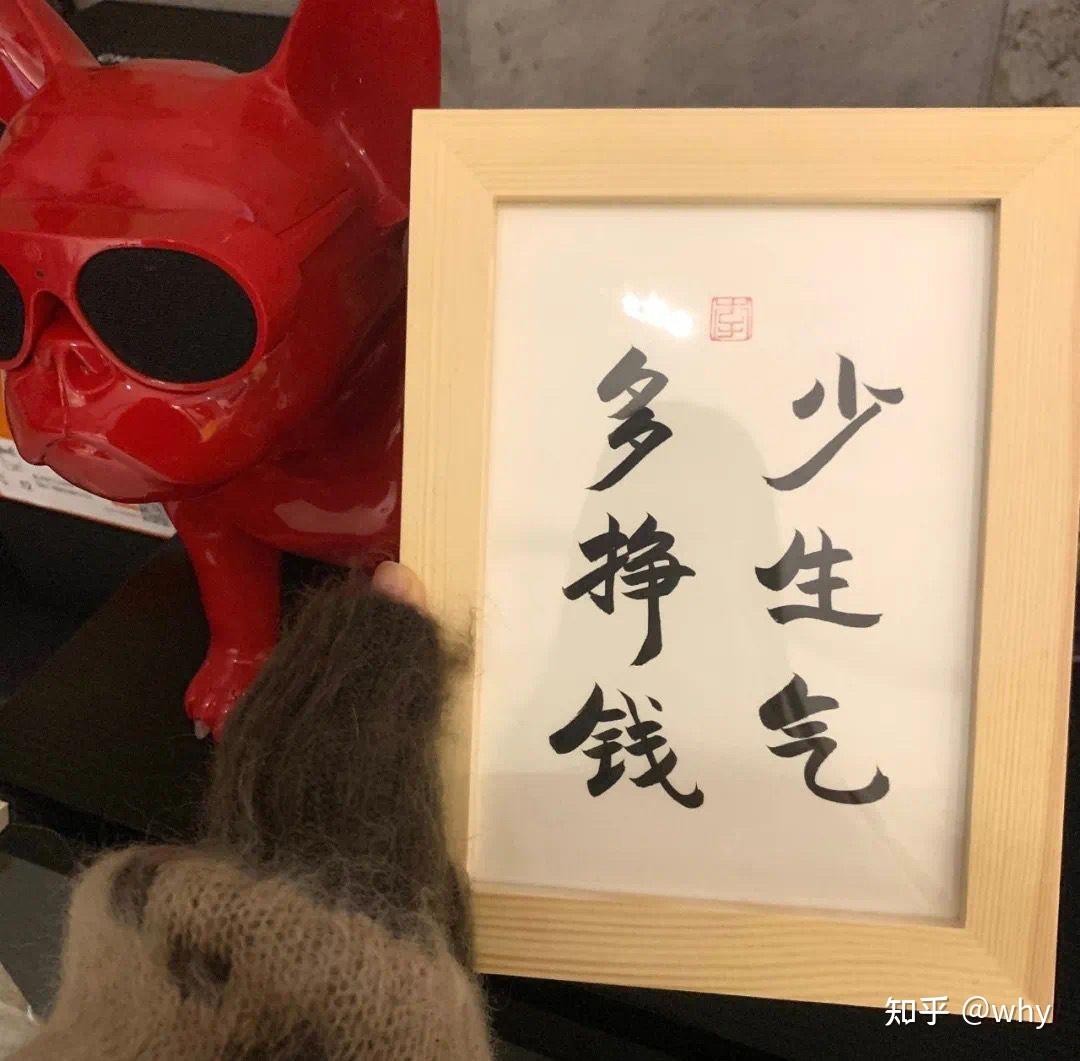 少生气
多挣钱
知乎 @why